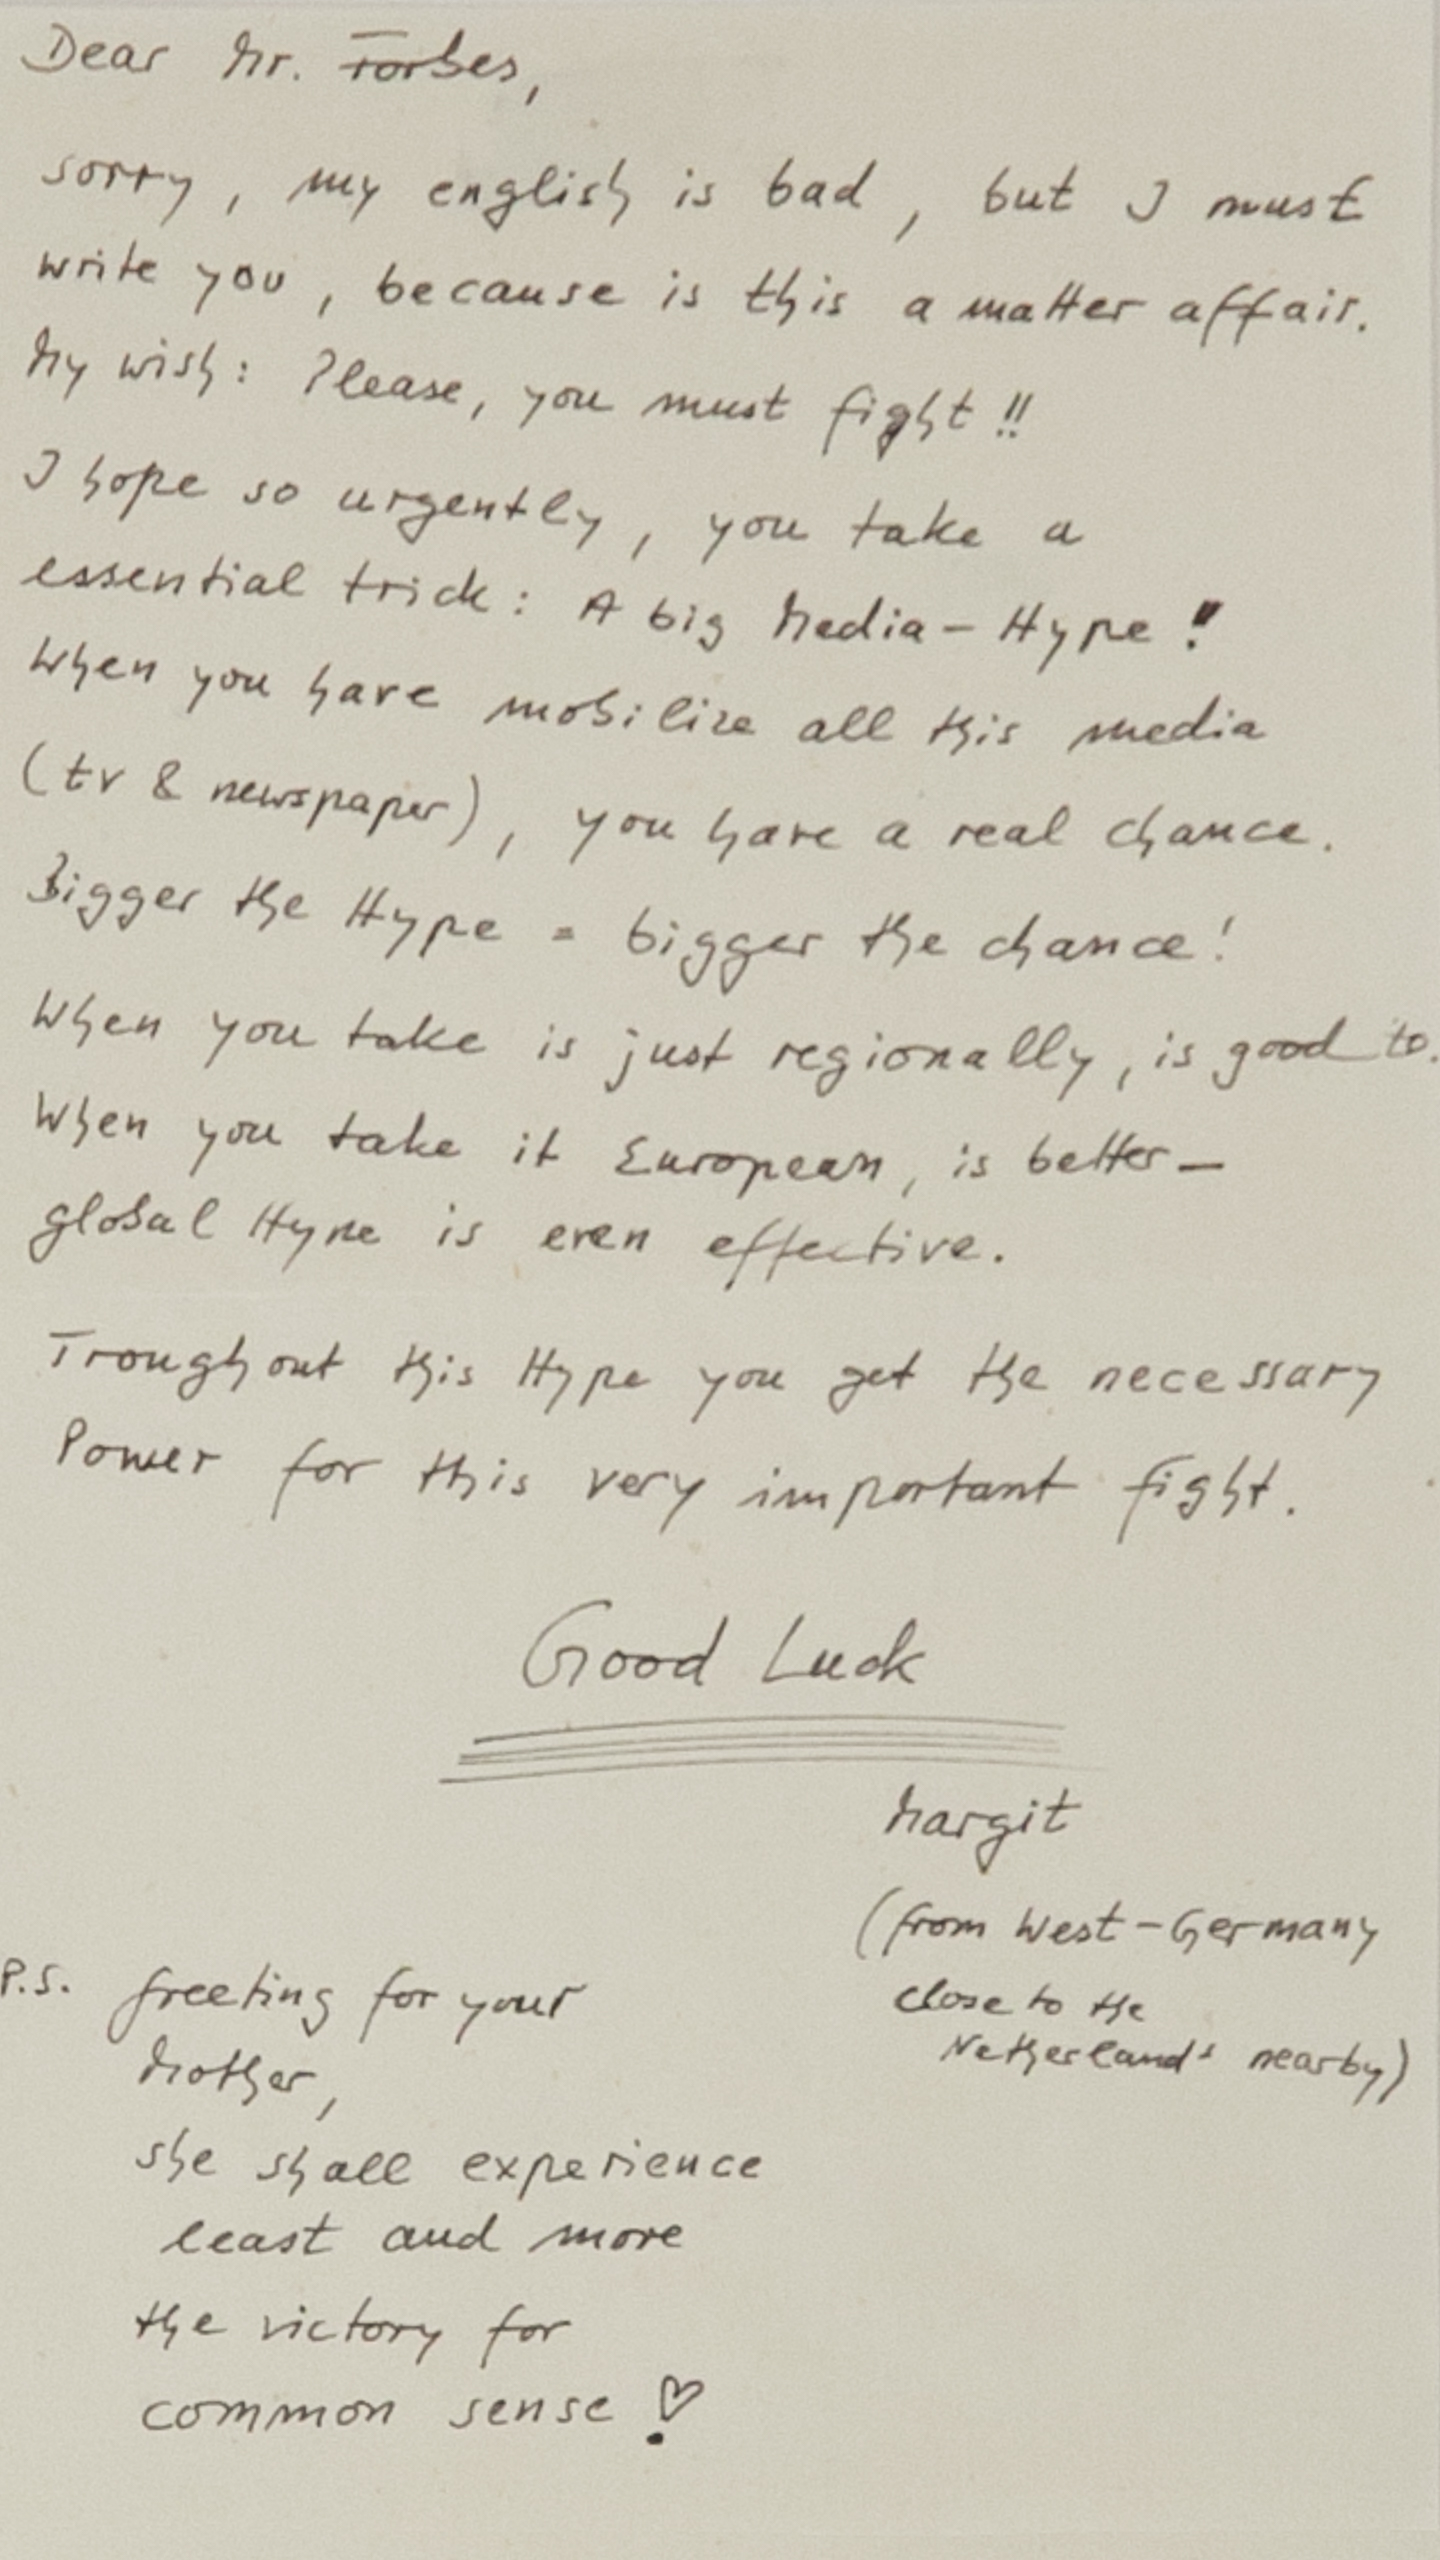 Dear Mr. Forbes,
sorry, my english is bad, but I must
write you, because is this a matter affair.
My wish: Please, you must fight!!
I hope so urgently, you take a
essential trick: A big Media-Hype!
When you have mobilize all this media
(tv & newspaper), you have a real chance.
Bigger the Hype = bigger the chance!
When you take is just regionally, is good to.
When you take it European, is better-
global Hype is even effective.
Troughout this Hype you get the necessary
Power for this very important fight.
Good Luck
Margit
(from West-Germany
close to the
Netherland's nearby)
P.S. greeting for your
Mother,
she shall experience
least and more
the victory for
common sense!